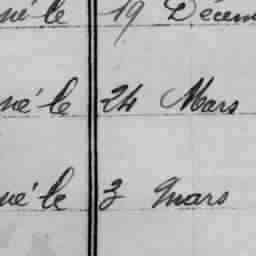 né le 19 Décem
né le 24 Mars
né le 3 Mars